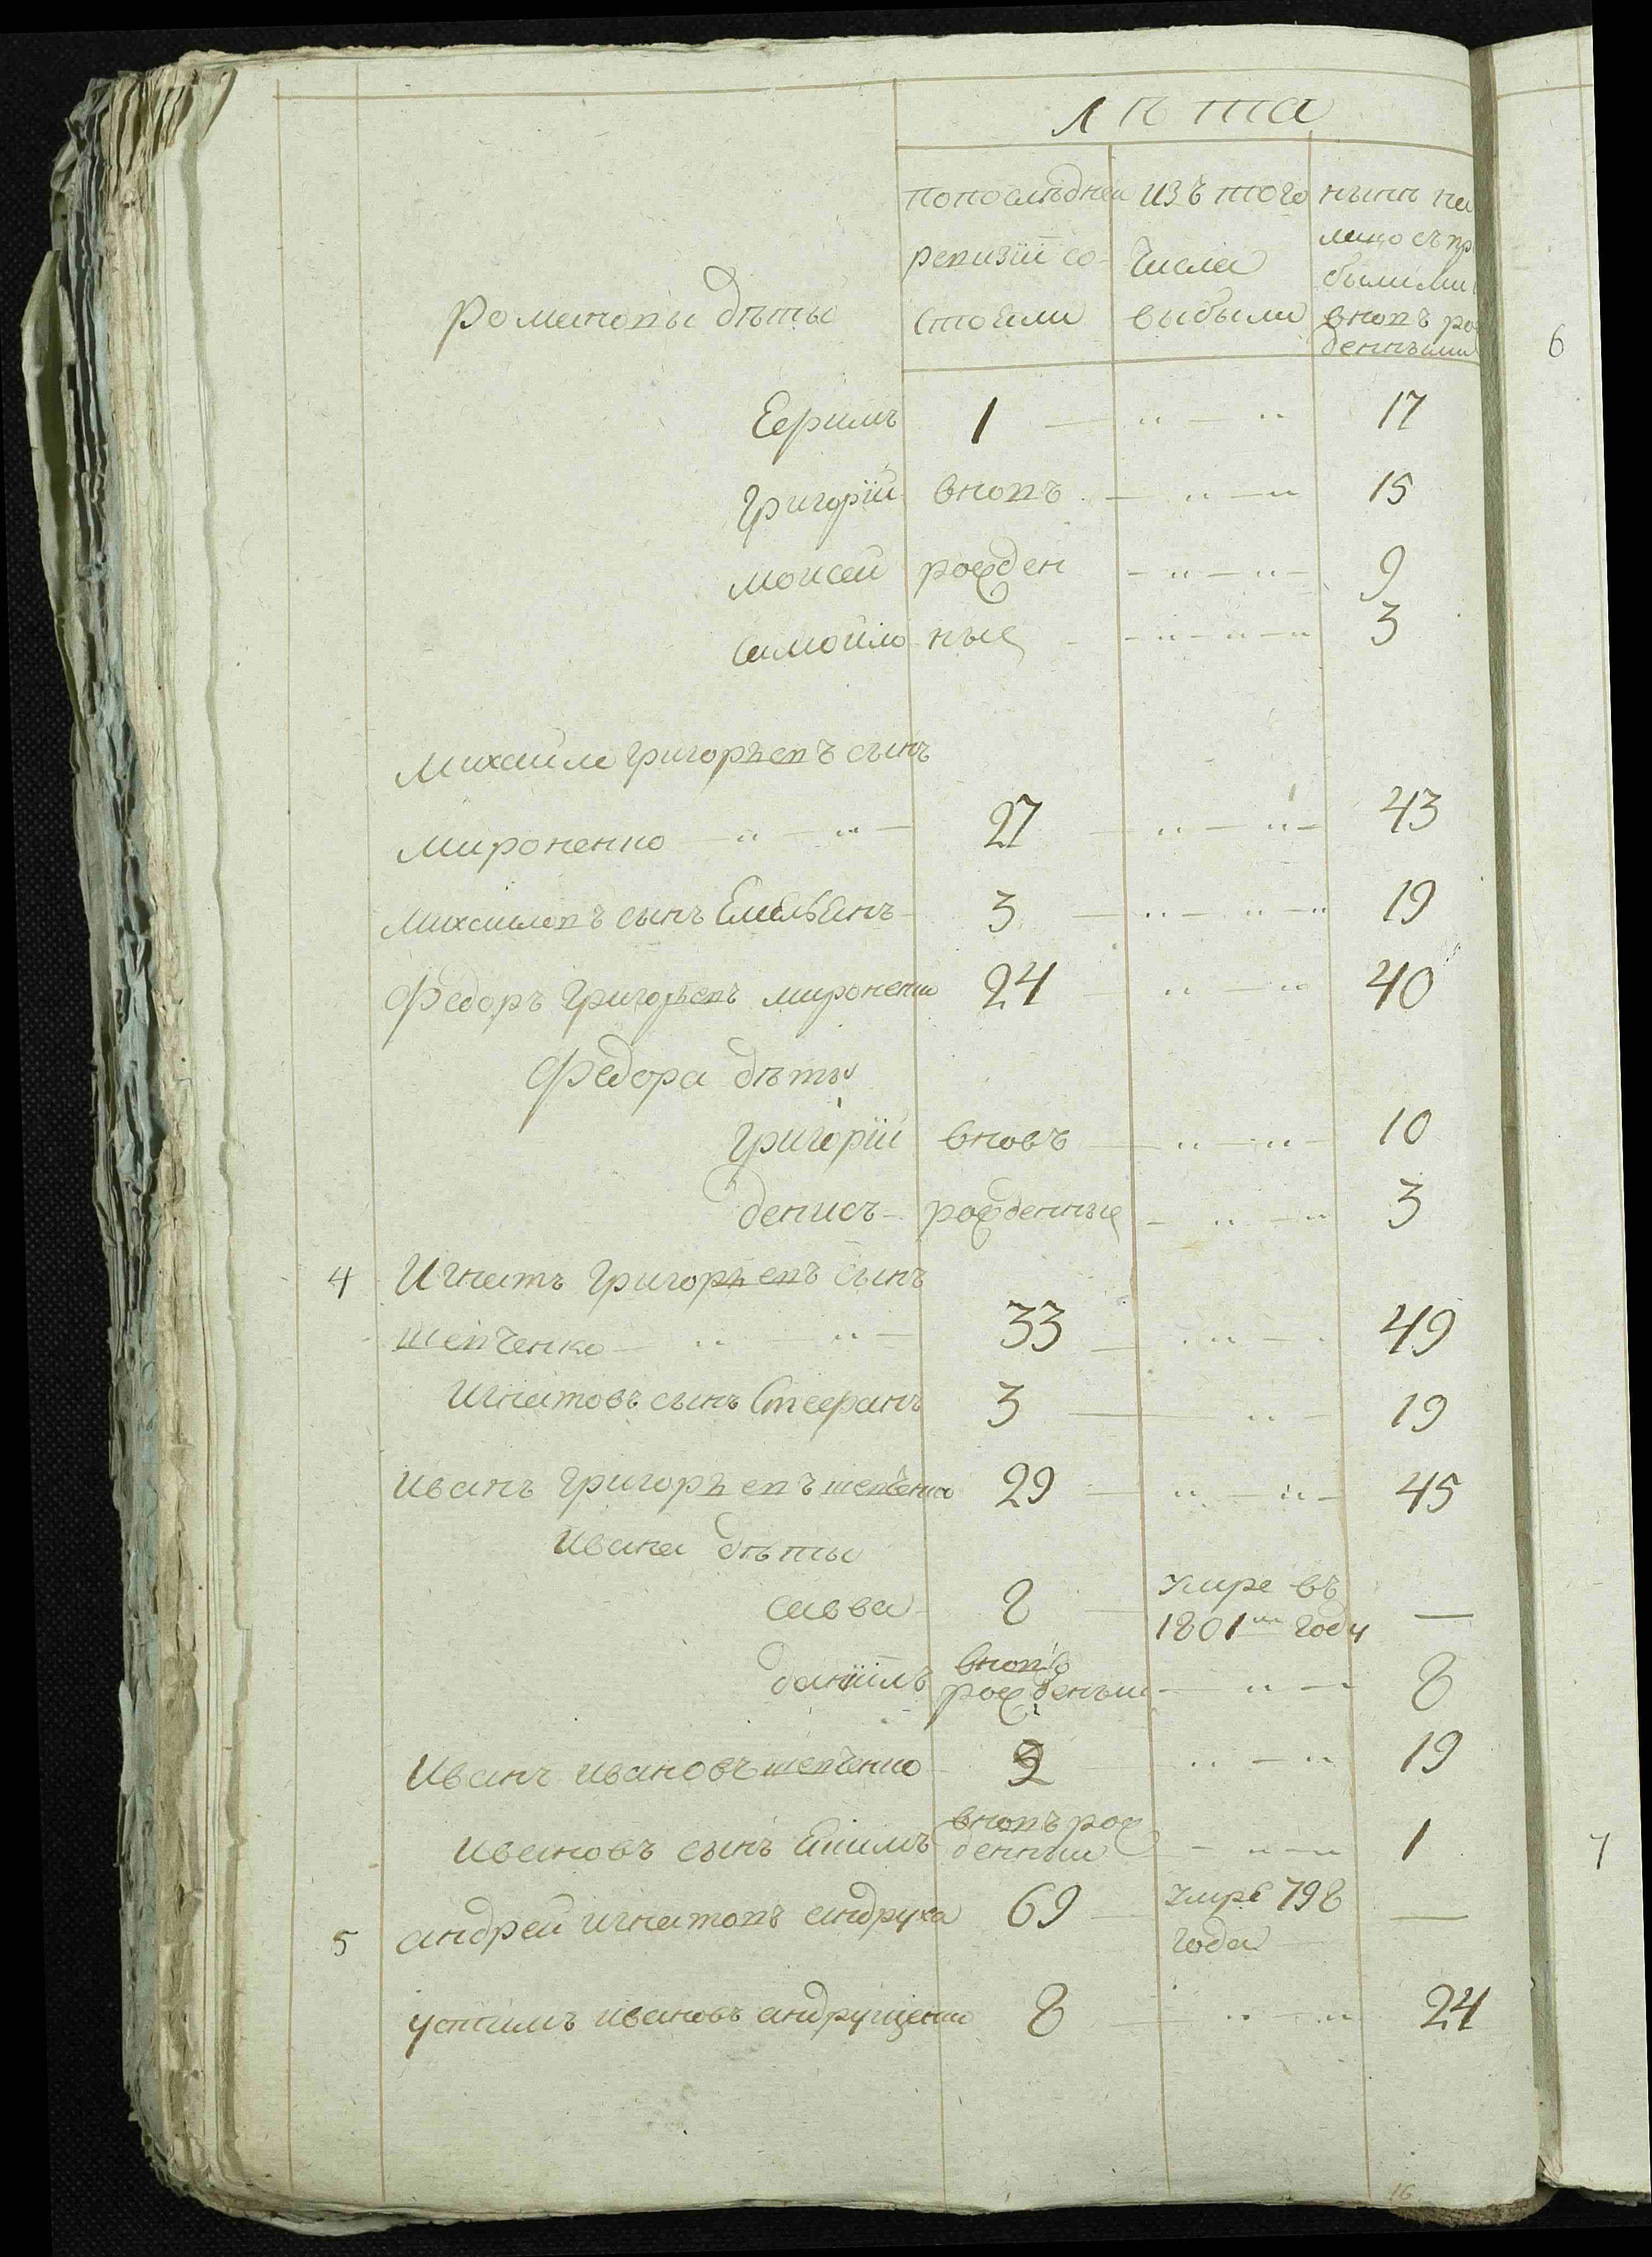 лѣта
по последней изъ того нынѣ на
ревизіи со- числа лицо съ пр
стояли выбыли былыми
вновъ ро
денными
Романовы дѣты
Ефимъ 1 17
Григорїй вновъ 15
Моисей рожден 9
Самойло ные 3
Михайла Григорьевъ сынъ
Мироненко 27 43
Михайловъ сынъ Емельянъ 3 19
Федоръ Григорьевъ Мироненко 24 40
Федора дѣты
Григорїй вновъ 10
Денисъ рожденные 3
4 Игнатъ Григорьевъ сынъ
Шевченко 33 49
Игнатовъ сынъ Стефанъ 3 19
Иванъ Григорьевъ Шевченко 29 45
Ивана дѣты
Савва 8 умре въ
1801м году —
Данїилъ вновъ
рожденъи 8
Иванъ Ивановъ Шевченко 19
Ивановъ сынъ Екимъ вновъ рож
денныи 1
5 Андрей Игнатовъ Андруха 69 умре 798
года —
Устимъ Ивановъ Андрущенко 8 24
16
6
7